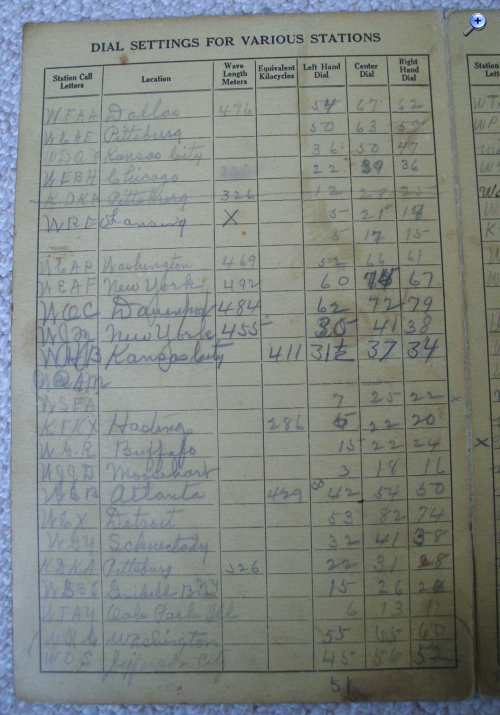 DIAL SETTINGS FOR VARIOUS STATIONS
Station Call Letters Location Wave Length Meters Equivalent Kilocycles Left Hand Dial Center Dial Right Hand Dial
WFAA Dallas 476 54 67 62
WCAE Pittsburg 50 63 57
Kansas City 36 50 47
WEBH Chicago 22 39 36
KDKA Pittsburg 326 12 28 25
WREO Lansing X 5 21 18
5 17 15
WCAP Washington 469 52 66 61
WEAF New York 492 60 74 67
WOC Davenport 484 62 72 79
WJZ New York 455 35 41 38
WHB Kansas City 411 31½ 37 34
WQAM
WSFA 7 25 22
KFKX Hastings 286 5 22 20
WGR Buffalo 15 22 24
WJJD Mooseheart 3 18 16
WSB Atlanta 429 42 54 50
WCX Detroit 53 82 74
WGY Schenectady 32 41 38
KDKA Pittsburg 326 22 31 28
15 26 24
WTAY Oak Park Ill 6 13 11
WRC Washington 55 65 60
WOS Jefferson City 45 56 52
51